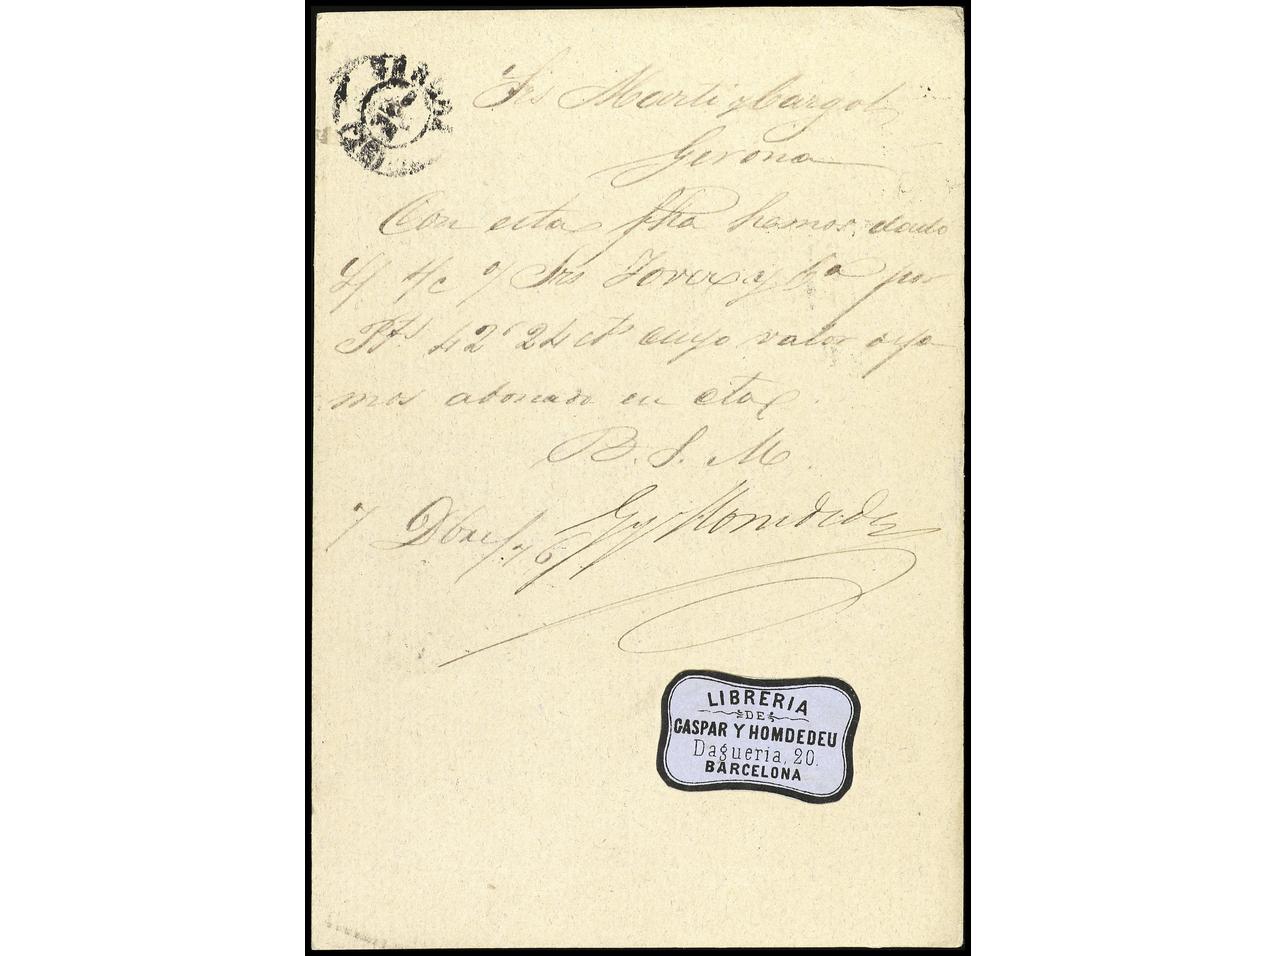 Srs Marti y Cargol
Gerona
Con esta fha hemos dado
Srs Jover y Cª por
Pts 42'24 cts cuyo valor aya
mos abonado en cta
B. S. M.
7 Dbre/76 G y Homdedeu
LIBRERIA
DE
GASPAR Y HOMDEDEU
Dagueria, 20.
BARCELONA